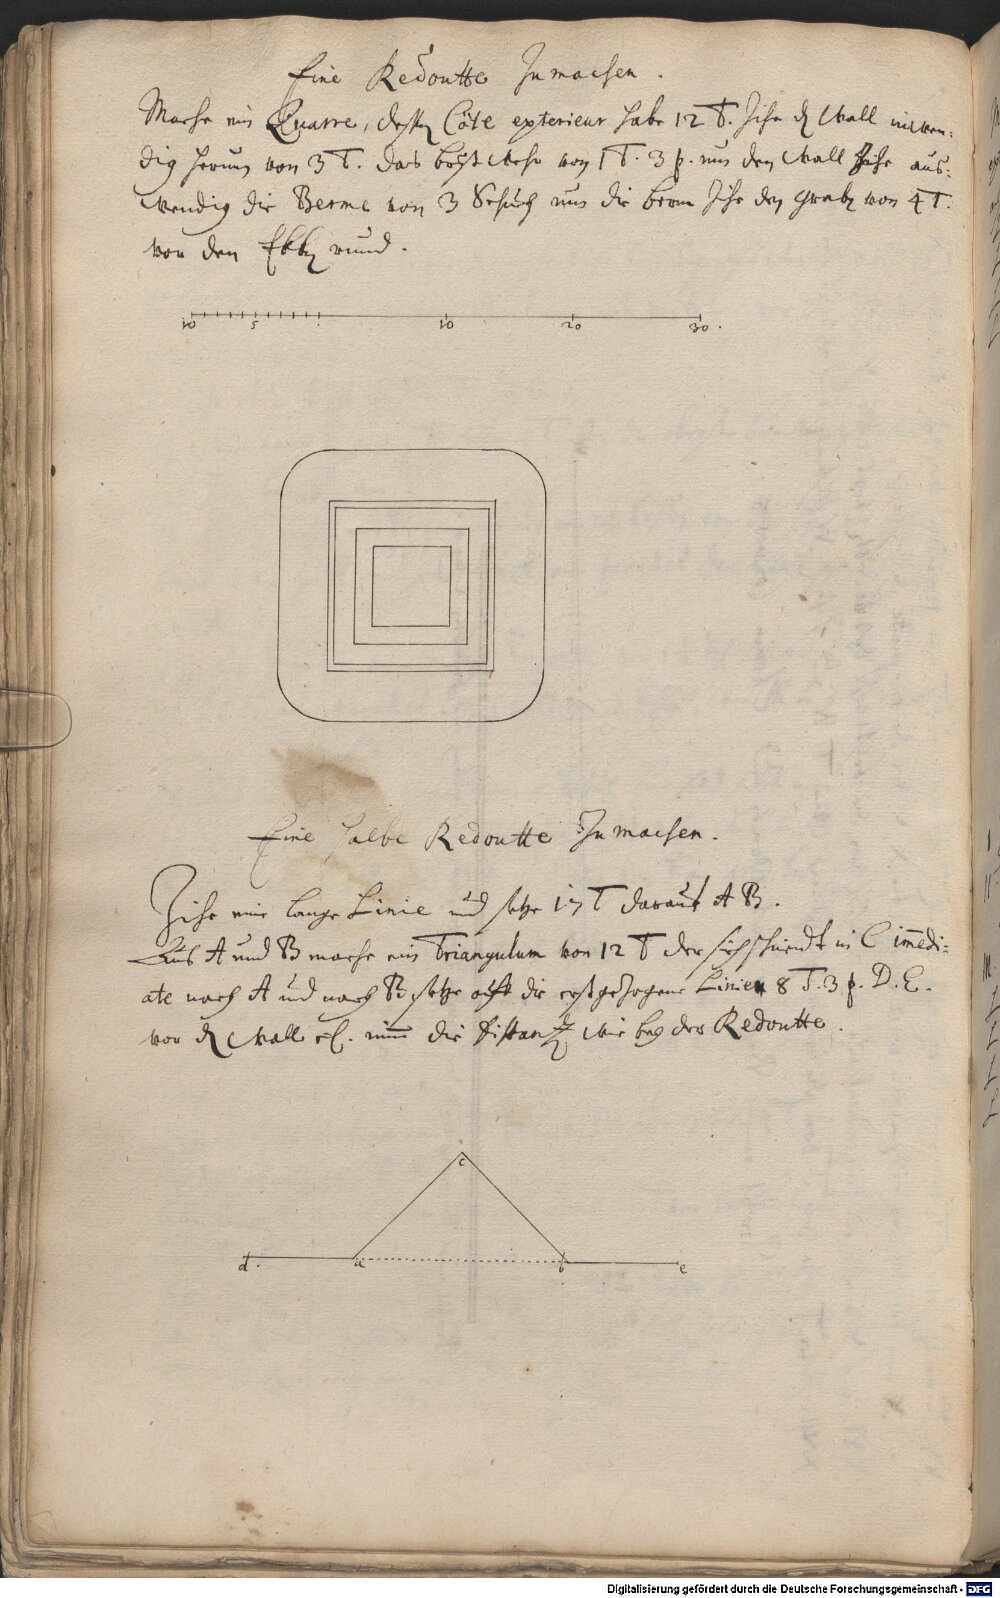 Eine Redoutte Zu machen.
Mache ein Quarre, deßen Côte exterieur habe 12 T. Zihe den Wall inwen:
dig herum von 3 T. das brust Wehr von 1 T. 3 p. um den Wall Zihe aus:
wendig die Berme von 3 Schuch um die berm Zihe den graben von 4 T.
vor den Ekken rund.
10 5 10 20 30.
Eine halbe Redoutte Zu machen.
Zihe eine lange Linie und setze 17 T darauf A B.
Aus A und B mache ein Triangulum von 12 T der sich schneidt in C imedi:
ate nach A und nach B setze auf die erst gezogene Linien 8 T. 3 p. D. E.
vor den Wall nim die distantz wie bey der Redoutte.
c
d. a b e
Digitalisierung gefördert durch die Deutsche Forschungsgemeinschaft - DFG